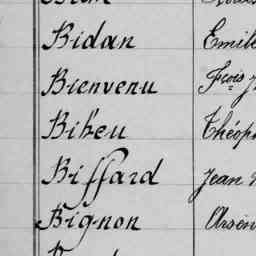 Bidan Emile
Bienvenu Frois
Biheu Théop
Biffard Jean
Bignon Arsèn